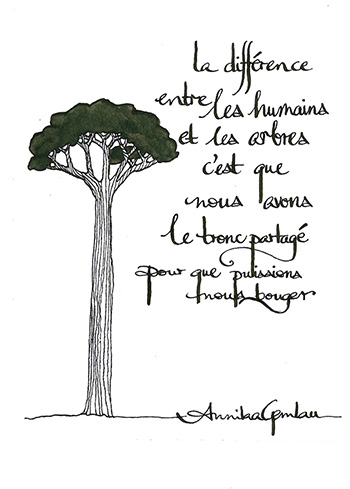 la différence
entre les humains
et les arbres
c'est que
nous avons
le tronc partagé
pour que puissions
nous bouger
Annika